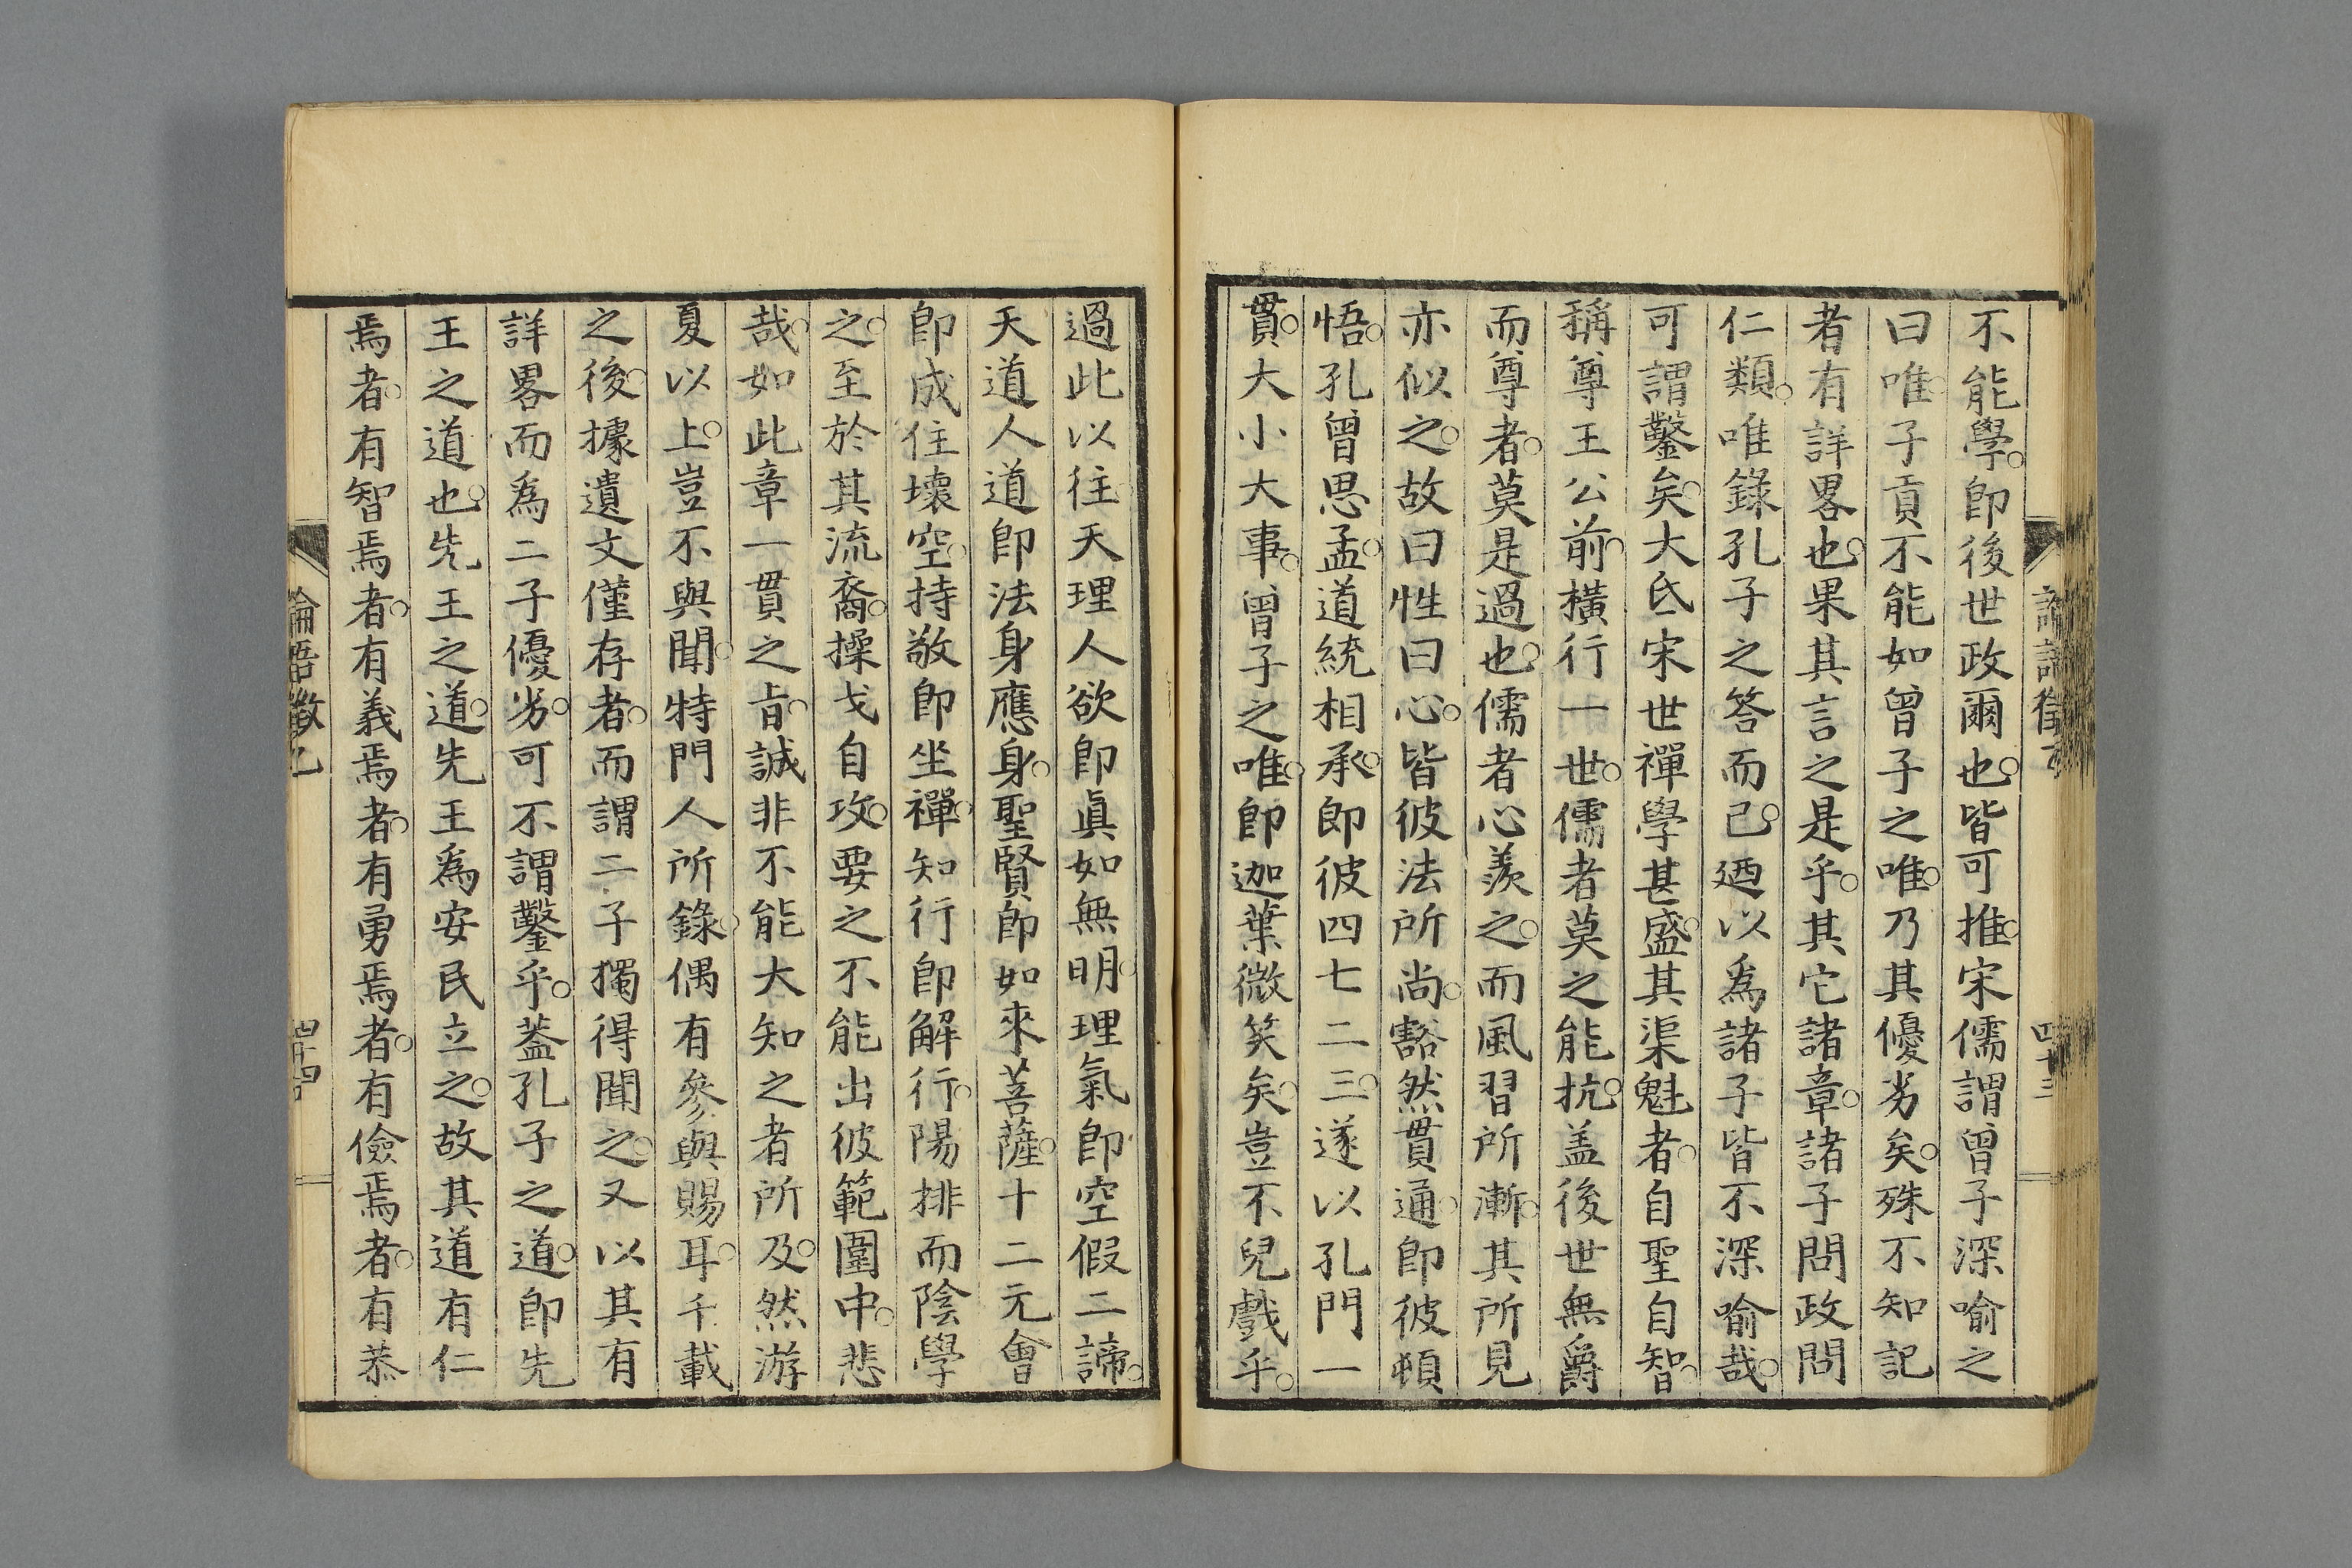 不能學。即後世政爾也。皆可推。宋儒謂曾子深喻之
曰唯。子貢不能如曾子之唯。乃其優劣矣。殊不知記
者有詳畧也。果其言之是乎。其它諸章。諸子問政問
仁類。唯錄孔子之答而已。廼以爲諸子皆不深喻哉。
可謂鑿矣。大氐宋世禪學甚盛。其渠魁者。自聖自智。
稱尊王公前。橫行一世。儒者莫之能抗。盖後世無爵
而尊者。莫是過也。儒者心羨之。而風習所漸。其所見
亦似之。故曰性曰心。皆彼法所尚。豁然貫通。即彼頓
悟。孔曾思孟。道統相承。即彼四七二三。遂以孔門一
貫。大小大事。曾子之唯。即迦葉微笑矣。豈不兒戲乎。
過此以往。天理人欲即眞如無明。理氣即空假二諦。
天道人道即法身應身。聖賢即如來菩薩。十二元會
即成住壞空。持敬即坐禪。知行即解行。陽排而陰學
之。至於其流裔。操戈自攻。要之不能出彼範圍中。悲
哉。如此章一貫之旨。誠非不能大知之者所及。然游
夏以上。豈不與聞。特門人所錄。偶有參與賜耳。千載
之後。據遺文僅存者。而謂二子獨得聞之。又以其有
詳畧而爲二子優劣。可不謂鑿乎。蓋孔子之道。即先
王之道也。先王之道。先王爲安民立之。故其道有仁
焉者。有智焉者。有義焉者。有勇焉者。有儉焉者。有恭
論語徵乙
四十四